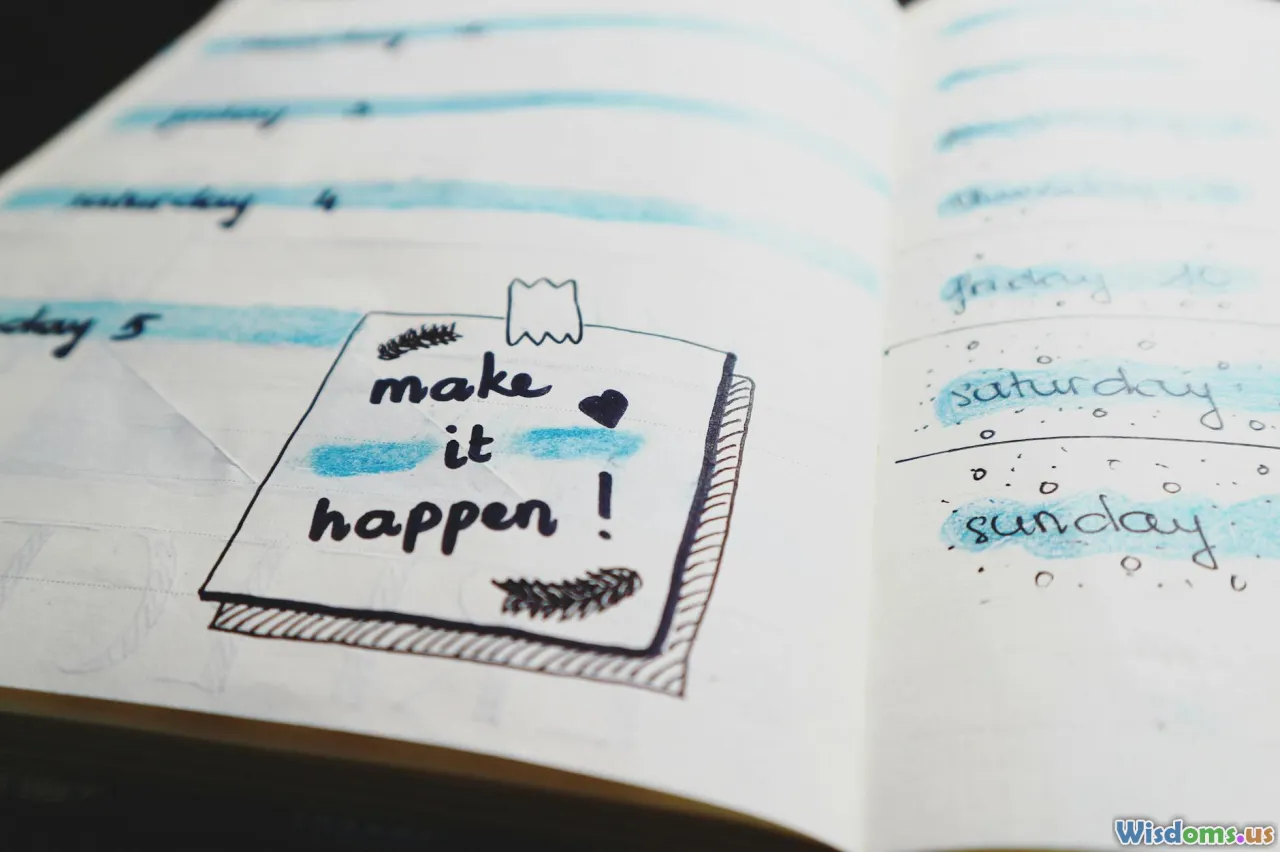 saturday 4
day 5
make
it
happen !
friday 10
saturday
sunday
Wisdoms.us